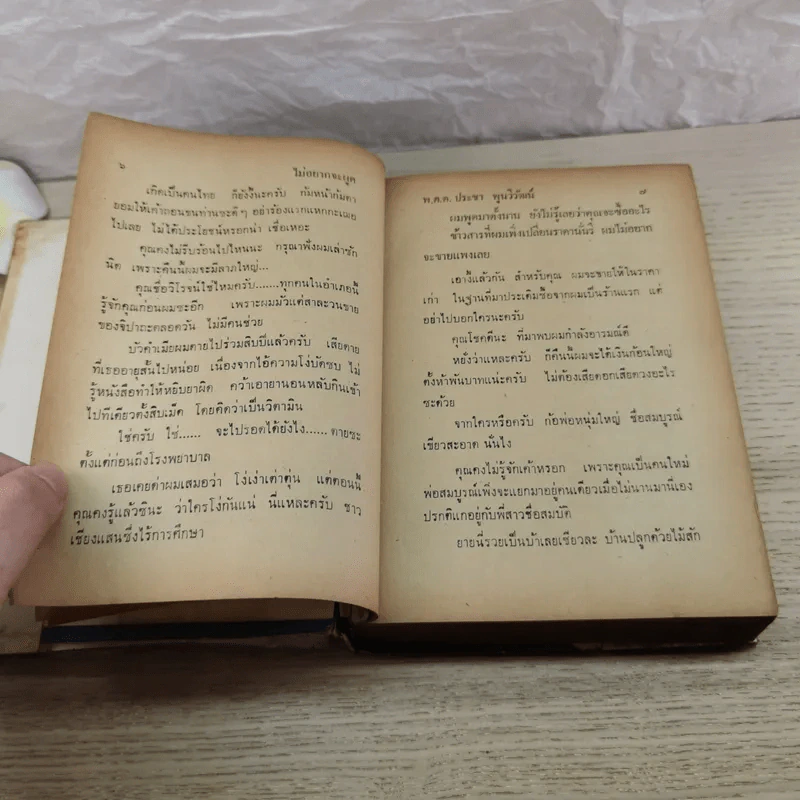 ๖ ไม่อยากจะพูด
เกิดเป็นคนไทย ก็ยังงี้นะครับ ก้มหน้าก้มตา
ยอมให้เค้าถอนขนท่านซะดีๆ อย่าร้องแรกแหกกะเฌอ
ไปเลย ไม่ได้ประโยชน์หรอกน่า เชื่อเหอะ
คุณคงไม่รีบร้อนไปไหนนะ กรุณาฟังผมเล่าซัก
นิด เพราะคืนนี้ผมจะมีลาภใหญ่...
คุณชื่อวิโรจน์ใช่ไหมครับ.......ทุกคนในอำเภอนี้
รู้จักคุณก่อนผมซะอีก เพราะผมมัวแต่สาละวนขาย
ของจิปาถะตลอดวัน ไม่มีคนช่วย
บัวคำเมียผมตายไปร่วมสิบปีแล้วครับ เสียดาย
ที่เธออายุสั้นไปหน่อย เนื่องจากไอ้ความโง่บัดซบ ไม่
รู้หนังสือทำให้หยิบยาผิด คว้าเอายานอนหลับกินเข้า
ไปทีเดียวตั้งสิบเม็ด โดยคิดว่าเป็นวิตามิน
ใช่ครับ ใช่...... จะไปรอดได้ยังไง...... ตายซะ
ตั้งแต่ก่อนถึงโรงพยาบาล
เธอเคยด่าผมเสมอว่า โง่เง่าเต่าตุ่น แต่ตอนนี้
คุณคงรู้แล้วซินะ ว่าใครโง่กันแน่ นี่แหละครับ ชาว
เชียงแสนซึ่งไร้การศึกษา
พ.ต.ต. ประชา พูนวิวัฒน์ ๗
ผมพูดมาตั้งนาน ยังไม่รู้เลยว่าคุณจะซื้ออะไร
ข้าวสารที่ผมเพิ่งเปลี่ยนราคานั่นรึ ผมไม่อยาก
จะขายแพงเลย
เอางี้แล้วกัน สำหรับคุณ ผมจะขายให้ในราคา
เก่า ในฐานที่มาประเดิมซื้อจากผมเป็นร้านแรก แต่
อย่าไปบอกใครนะครับ
คุณโชคดีนะ ที่มาพบผมกำลังอารมณ์ดี
หยั่งว่าแหละครับ ก็คืนนี้ผมจะได้เงินก้อนใหญ่
ตั้งห้าพันบาทแน่ะครับ ไม่ต้องเสียดอกเสียดวงอะไร
ซะด้วย
จากใครหรือครับ ก้อพ่อหนุ่มใหญ่ ชื่อสมบูรณ์
เขียวสะอาด นั่นไง
คุณคงไม่รู้จักเค้าหรอก เพราะคุณเป็นคนใหม่
พ่อสมบูรณ์เพิ่งจะแยกมาอยู่คนเดียวเมื่อไม่นานมานี้เอง
ปรกติแกอยู่กับพี่สาวชื่อสมบัติ
ยายนี่รวยเป็นบ้าเลยเชียวละ บ้านปลูกด้วยไม้สัก